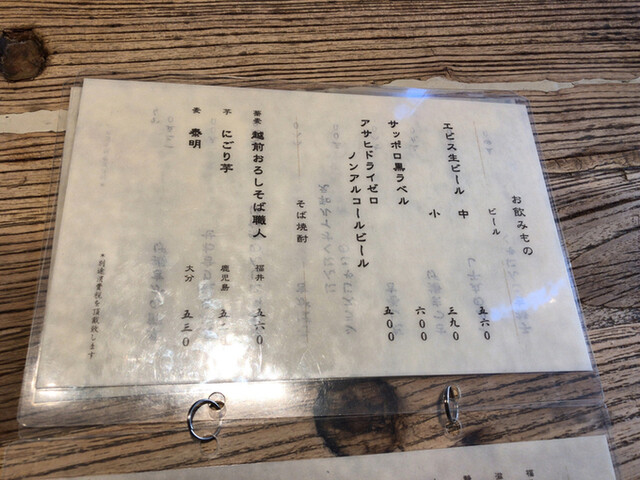 お飲みもの
ビール
エビス生ビール 中 五六0
小 三九0
サッポロ黒ラベル 六00
アサヒドライゼロ
ノンアルコールビール 五00
そば焼酎
蕎麦 越前おろしそば職人 福井 五六0
芋 にごり芋 鹿児島 五
麦 泰明 大分 五三0
*別途消費税を頂戴致します